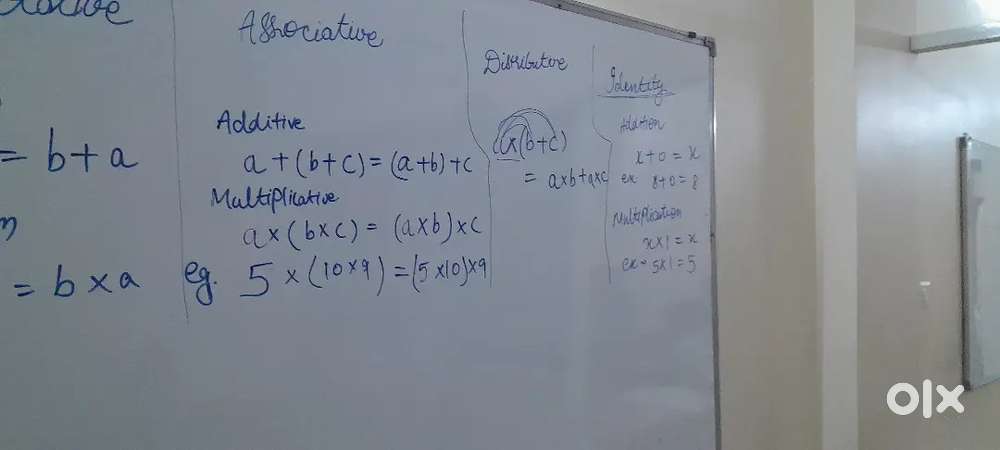 = b+a
= b×a
Associative
Additive
a+(b+c)=(a+b)+c
Multiplicative
a×(b×c)=(a×b)×c
eg. 5×(10×9)=(5×10)×9
Distributive
a×(b+c)
= a×b+a×c
Identity
Addition
x+0=x
ex 8+0=8
Multiplication
x×1=x
ex- 5×1=5
olx